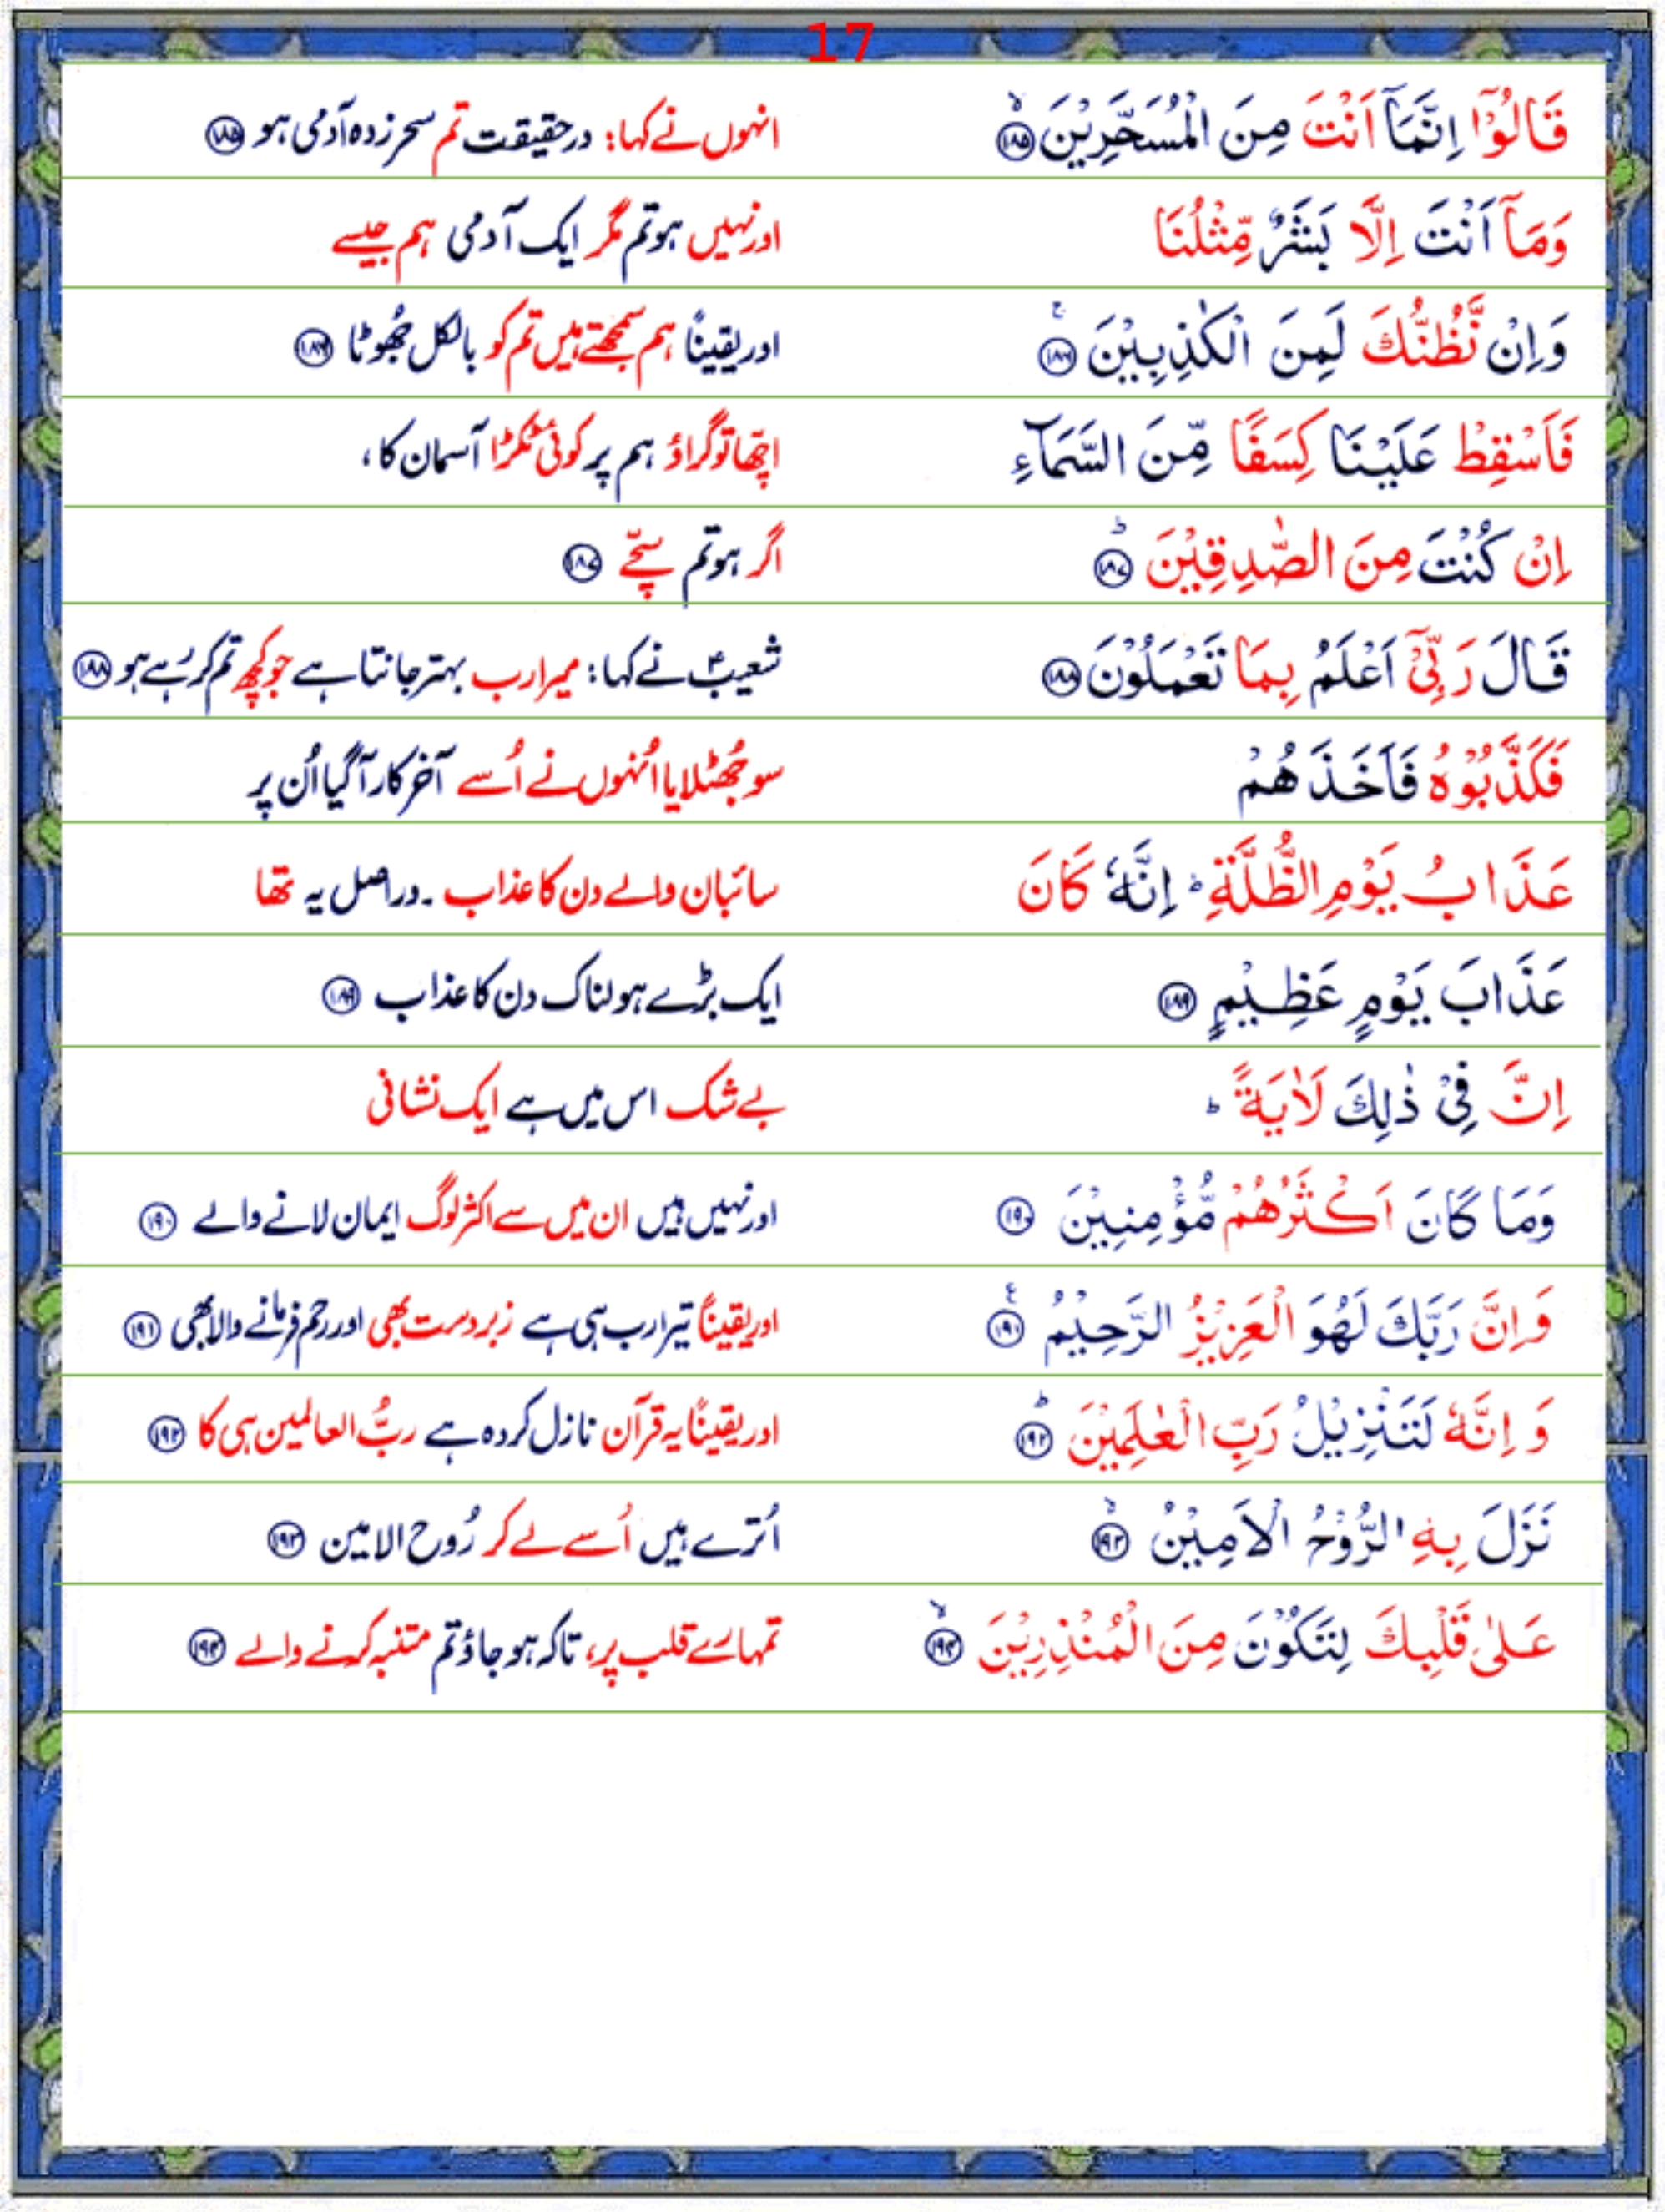 17
قَالُوْۤا اِنَّمَاۤ اَنْتَ مِنَ الْمُسَحَّرِيْنَۙ ﴿۱۸۵﴾ انہوں نے کہا: درحقیقت تم سحرزدہ آدمی ہو ﴿۱۸۵﴾
وَمَاۤ اَنْتَ اِلَّا بَشَرٌ مِّثْلُنَا اور نہیں ہو تم مگر ایک آدمی ہم جیسے
وَاِنْ نَّظُنُّكَ لَمِنَ الْكٰذِبِيْنَۚ ﴿۱۸۶﴾ اور یقیناً ہم سمجھتے ہیں تم کو بالکل جُھوٹا ﴿۱۸۶﴾
فَاَسْقِطْ عَلَيْنَا كِسَفًا مِّنَ السَّمَآءِ اچّھا تو گراؤ ہم پر کوئی ٹکڑا آسمان کا،
اِنْ كُنْتَ مِنَ الصّٰدِقِيْنَؕ ﴿۱۸۷﴾ اگر ہو تم سچّے ﴿۱۸۷﴾
قَالَ رَبِّيْۤ اَعْلَمُ بِمَا تَعْمَلُوْنَ ﴿۱۸۸﴾ شعیبؑ نے کہا: میرا رب بہتر جانتا ہے جو کچھ تم کر رہے ہو ﴿۱۸۸﴾
فَكَذَّبُوْهُ فَاَخَذَهُمْ سو جُھٹلایا اُنہوں نے اُسے آخرکار آگیا اُن پر
عَذَابُ يَوْمِ الظُّلَّةِؕ اِنَّهٗ كَانَ سائبان والے دن کا عذاب ۔ دراصل یہ تھا
عَذَابَ يَوْمٍ عَظِيْمٍ ﴿۱۸۹﴾ ایک بڑے ہولناک دن کا عذاب ﴿۱۸۹﴾
اِنَّ فِيْ ذٰلِكَ لَاٰيَةًؕ بے شک اس میں ہے ایک نشانی
وَمَا كَانَ اَكْثَرُهُمْ مُّؤْمِنِيْنَ ﴿۱۹۰﴾ اور نہیں ہیں ان میں سے اکثر لوگ ایمان لانے والے ﴿۱۹۰﴾
وَاِنَّ رَبَّكَ لَهُوَ الْعَزِيْزُ الرَّحِيْمُ ﴿۱۹۱﴾ اور یقیناً تیرا رب ہی ہے زبردست بھی اور رحم فرمانے والا بھی ﴿۱۹۱﴾
وَاِنَّهٗ لَتَنْزِيْلُ رَبِّ الْعٰلَمِيْنَؕ ﴿۱۹۲﴾ اور یقیناً یہ قرآن نازل کردہ ہے ربُّ العالمین ہی کا ﴿۱۹۲﴾
نَزَلَ بِهِ الرُّوْحُ الْاَمِيْنُۙ ﴿۱۹۳﴾ اُترے ہیں اُسے لے کر رُوح الامین ﴿۱۹۳﴾
عَلٰى قَلْبِكَ لِتَكُوْنَ مِنَ الْمُنْذِرِيْنَۙ ﴿۱۹۴﴾ تمہارے قلب پر، تاکہ ہو جاؤ تم متنبہ کرنے والے ﴿۱۹۴﴾